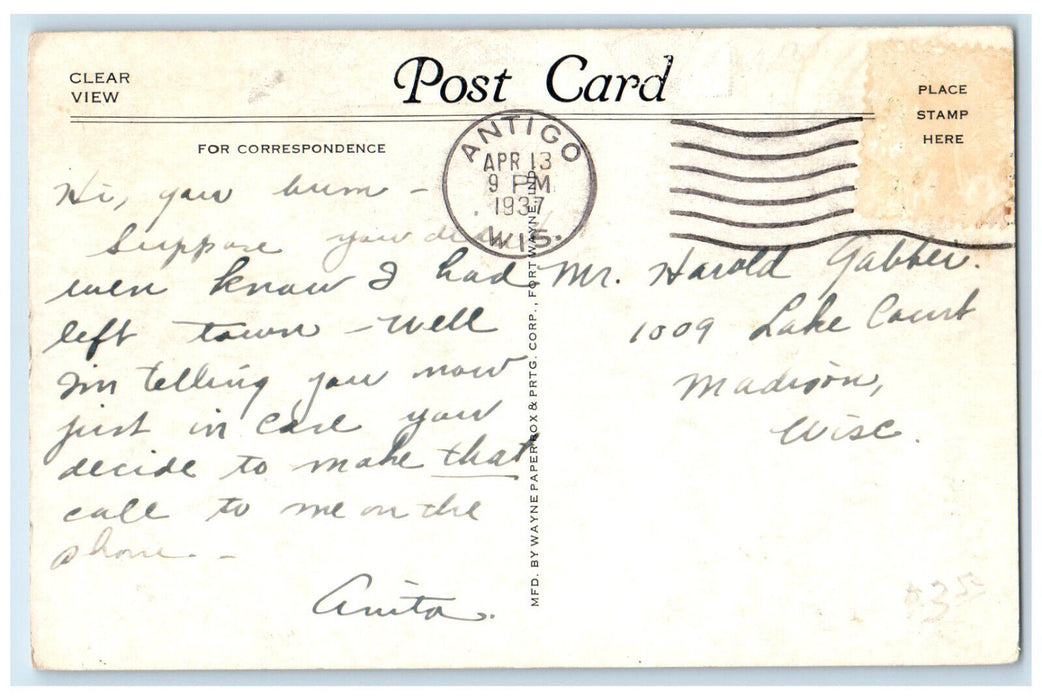 CLEAR
VIEW
Post Card
PLACE
STAMP
HERE
FOR CORRESPONDENCE
ANTIGO
APR 13
9 PM
1937
WIS.
Hi, you bum –
Suppose you didn't
even know I had
left town – well
I'm telling you now
just in case you
decide to make that
call to me on the
phone. –
Anita.
MFD. BY WAYNE PAPER BOX & PRTG. CORP., FORT WAYNE, IND.
Mr. Harold Gabbei.
1009 Lake Court
Madison,
Wisc.